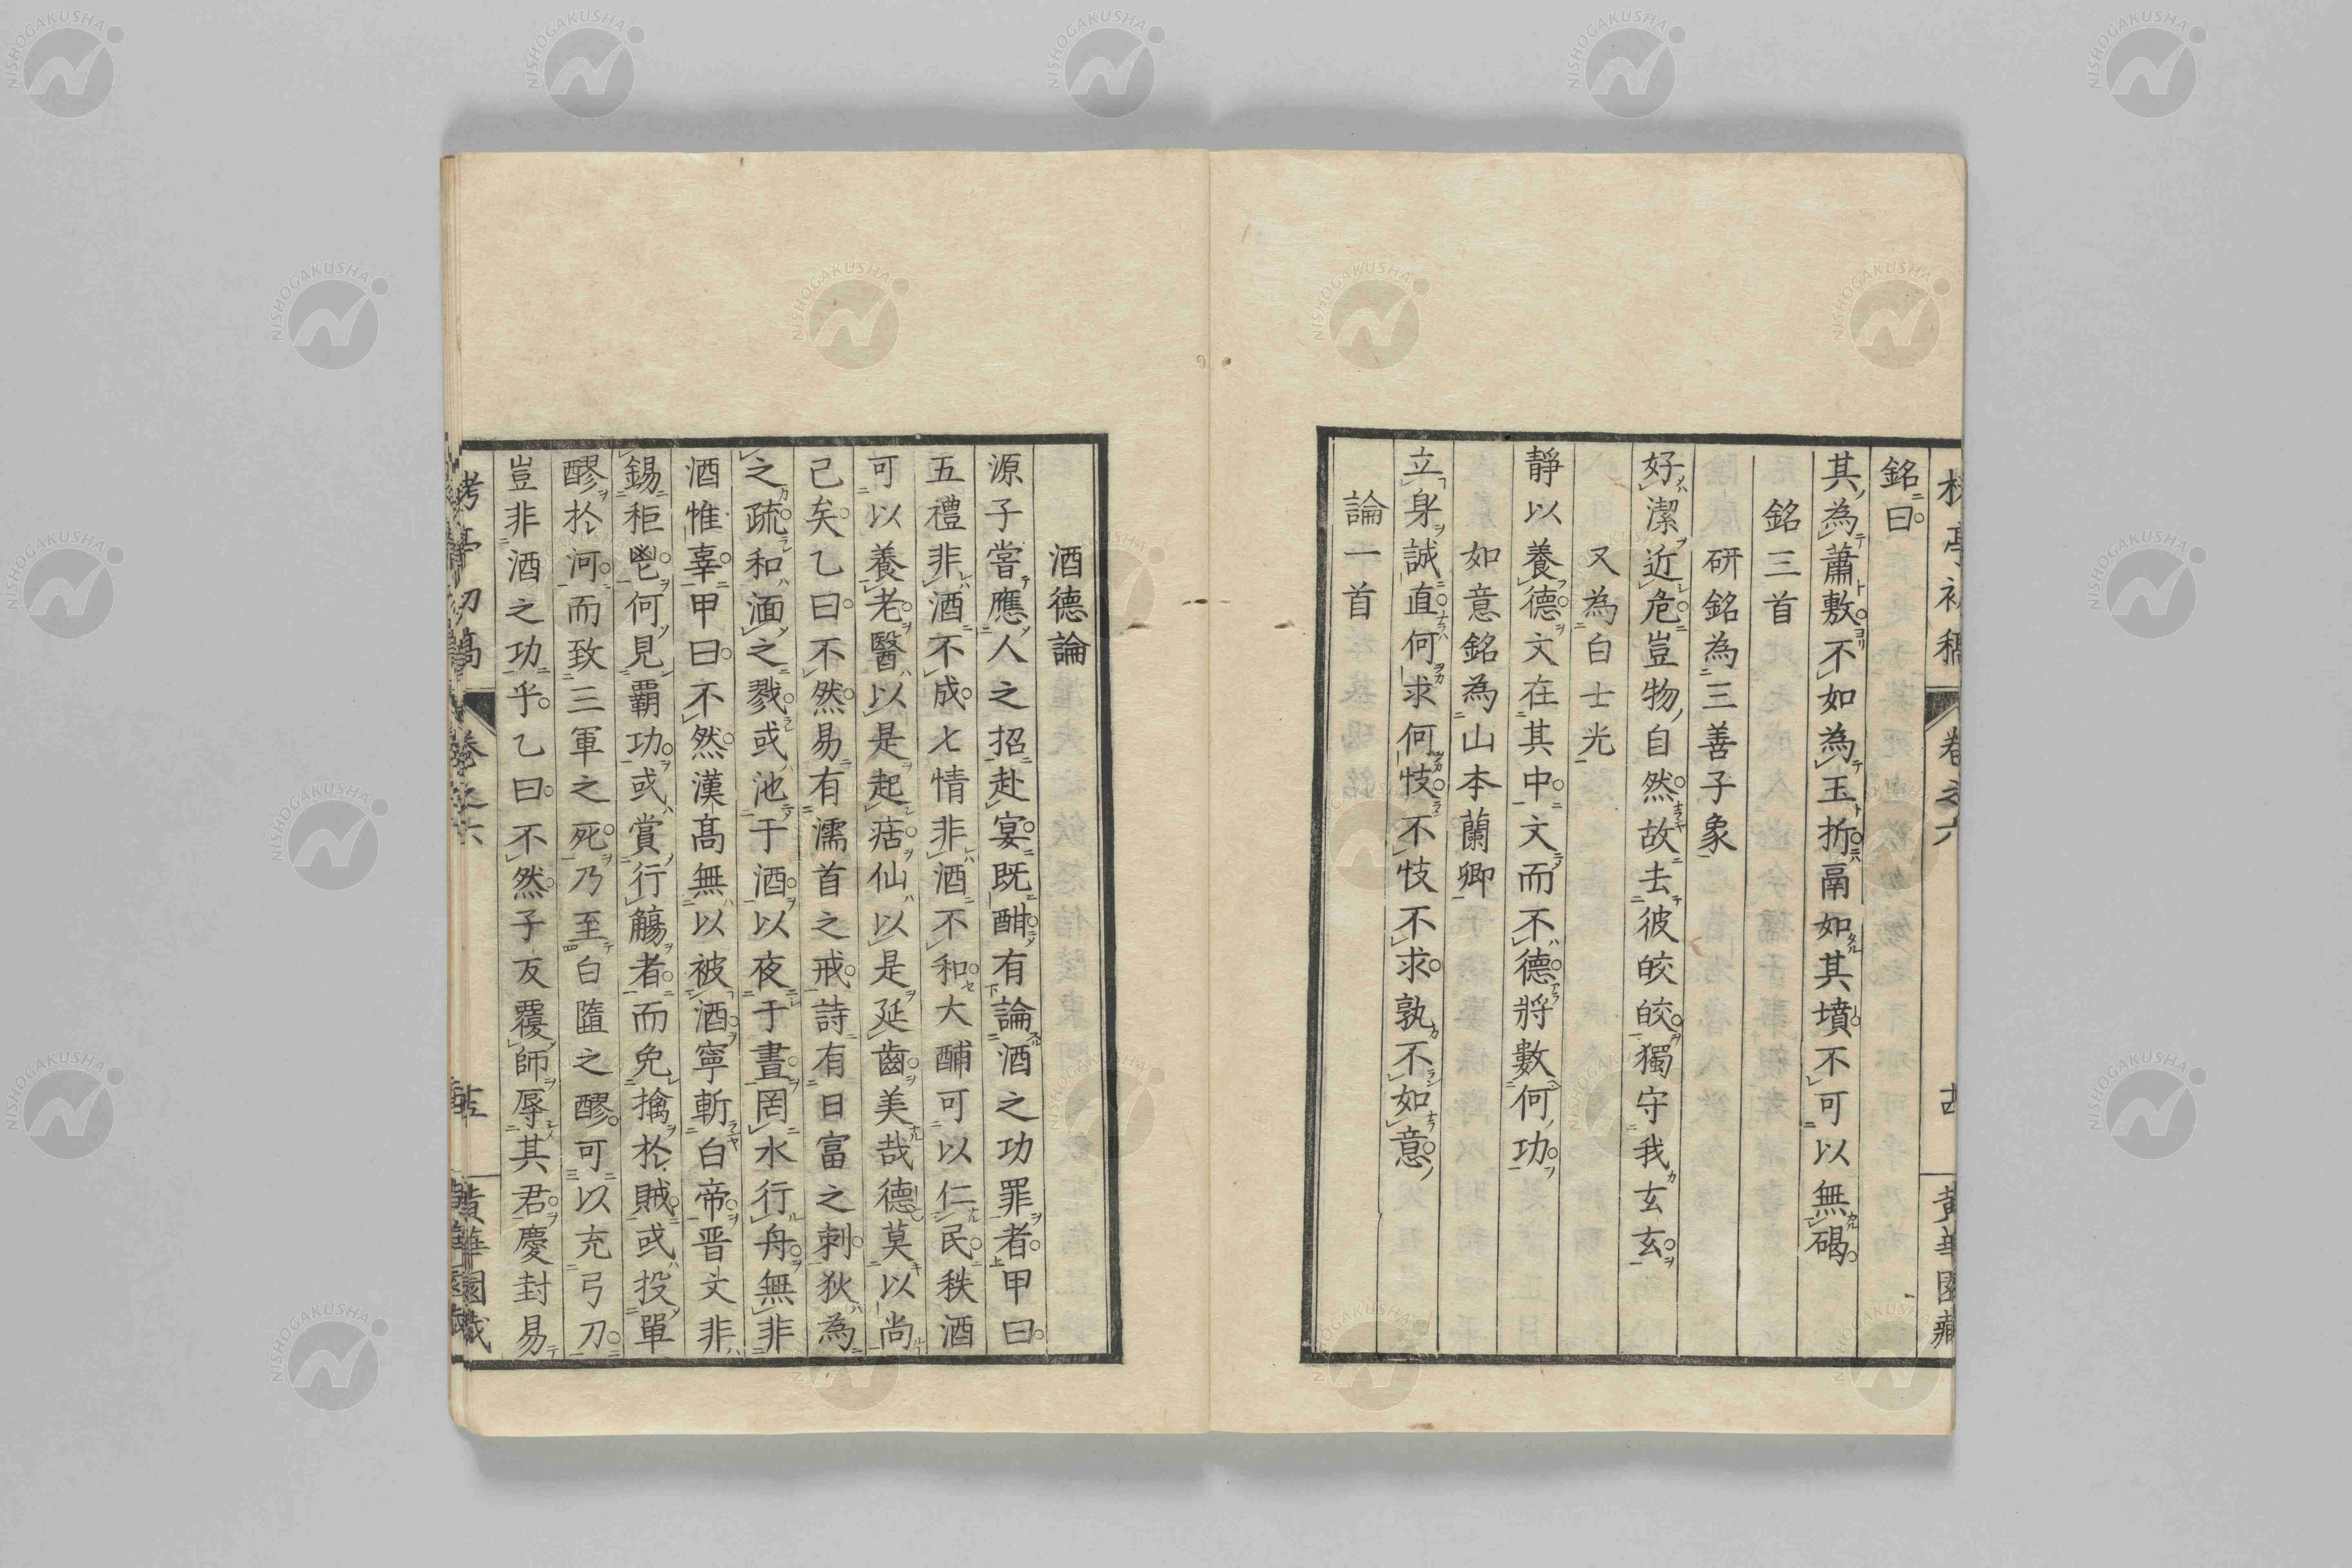 銘曰
其為蕭敷不如為玉折鬲如其墳不可以無碣
銘三首
研銘為三善子象
好潔近危豈物自然故去彼皎皎獨守我玄玄
又為白士光
靜以養德文在其中文而不德將數何功
如意銘為山本蘭卿
立身誠直何求何忮不忮不求孰不如意
論一首
酒德論
源子嘗應人之招赴宴既酣有論酒之功罪者甲曰
五禮非酒不成七情非酒不和大酺可以仁民秩酒
可以養老醫以是起痁仙以是延齒美哉德莫以尚
已矣乙曰不然易有濡首之戒詩有日富之刺狄為
之疏和湎之戮或池于酒以夜于晝罔水行舟無非
酒惟辜甲曰不然漢高無以被酒寧斬白帝晋文非
錫秬鬯何見覇功或賞行觴者而免擒於賊或投單
醪於河而致三軍之死乃至白墮之醪可以充弓刀
豈非酒之功乎乙曰不然子反覆師辱其君慶封易
卷之六
黄華園藏